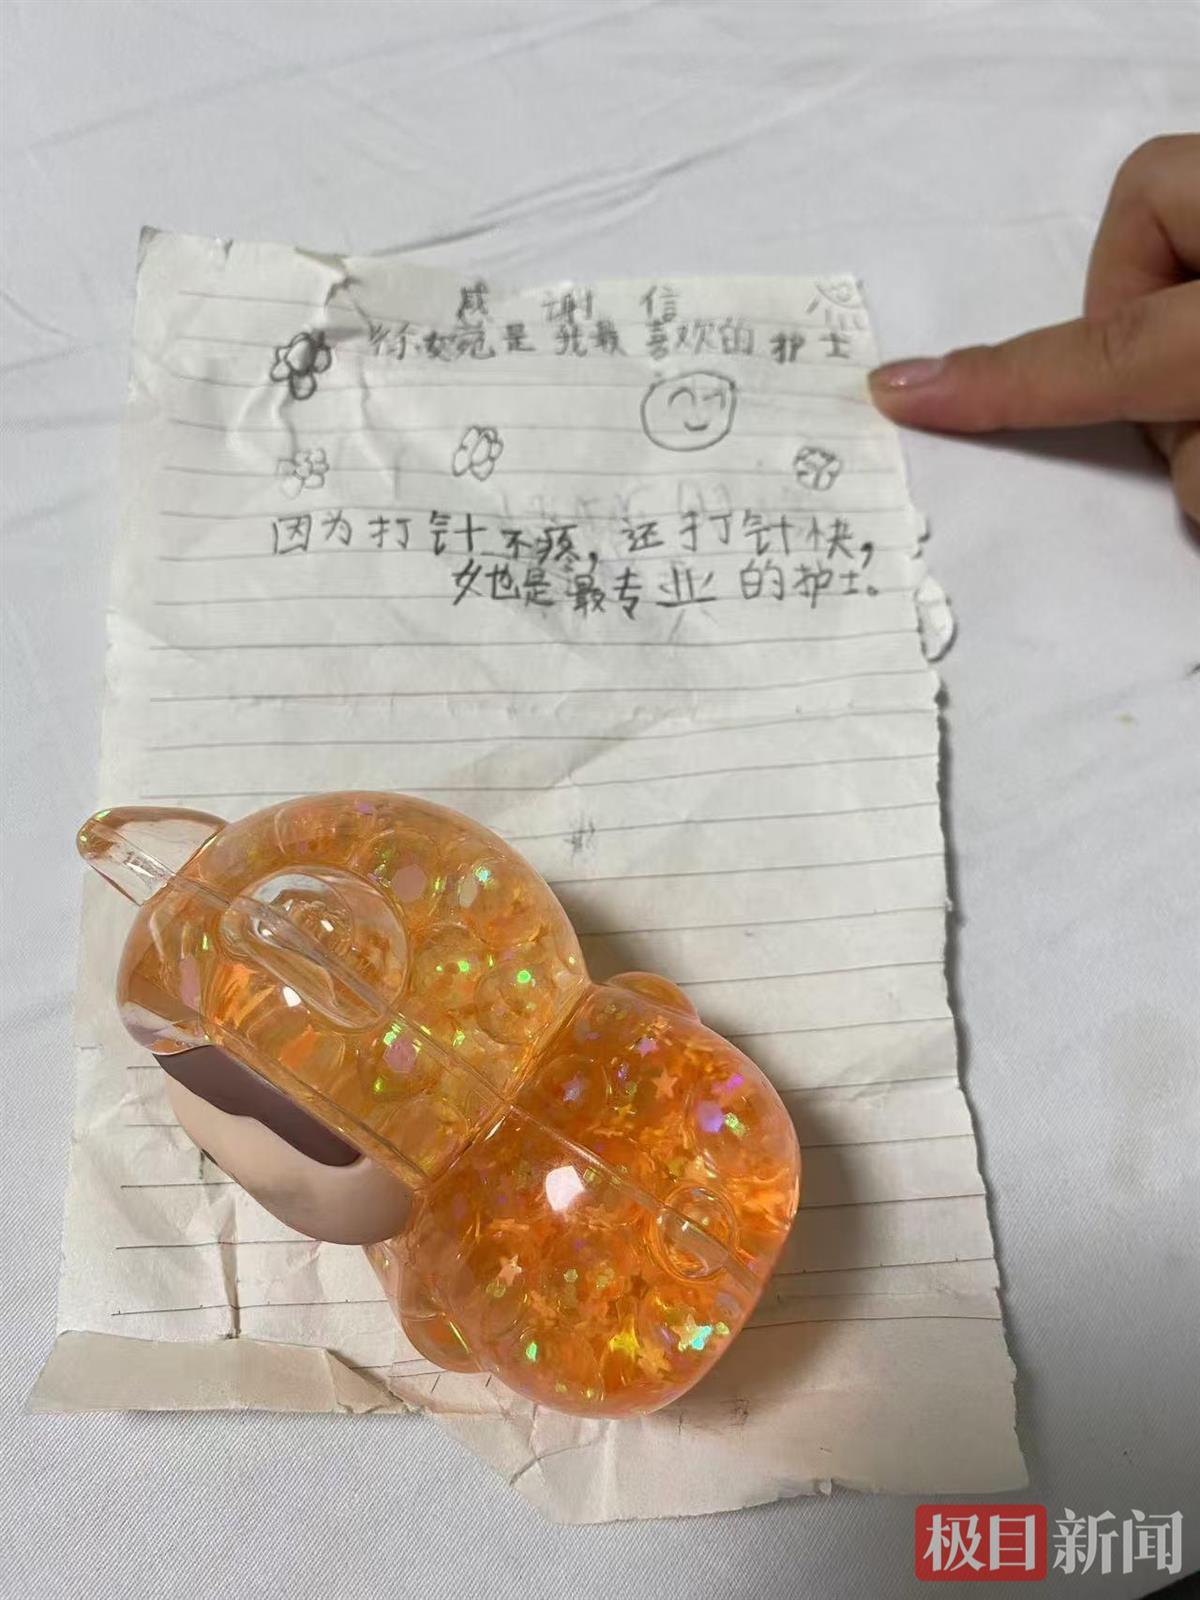 感 谢 信
徐婉菀是我最喜欢的护士
因为打针不疼，还打针快，
她也是最专业的护士。
极目新闻